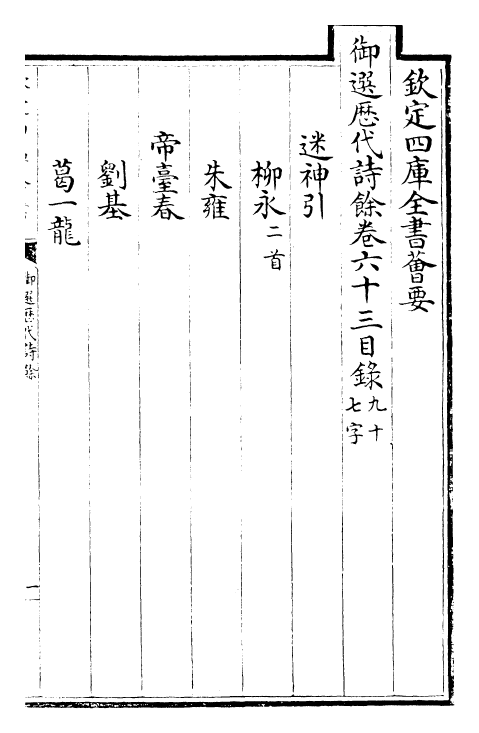 欽定四庫全書薈要
御選歴代詩餘卷六十三目錄九十七字
迷神引
柳永二首
朱雍
帝臺春
劉基
葛一龍
御選歴代詩餘
一